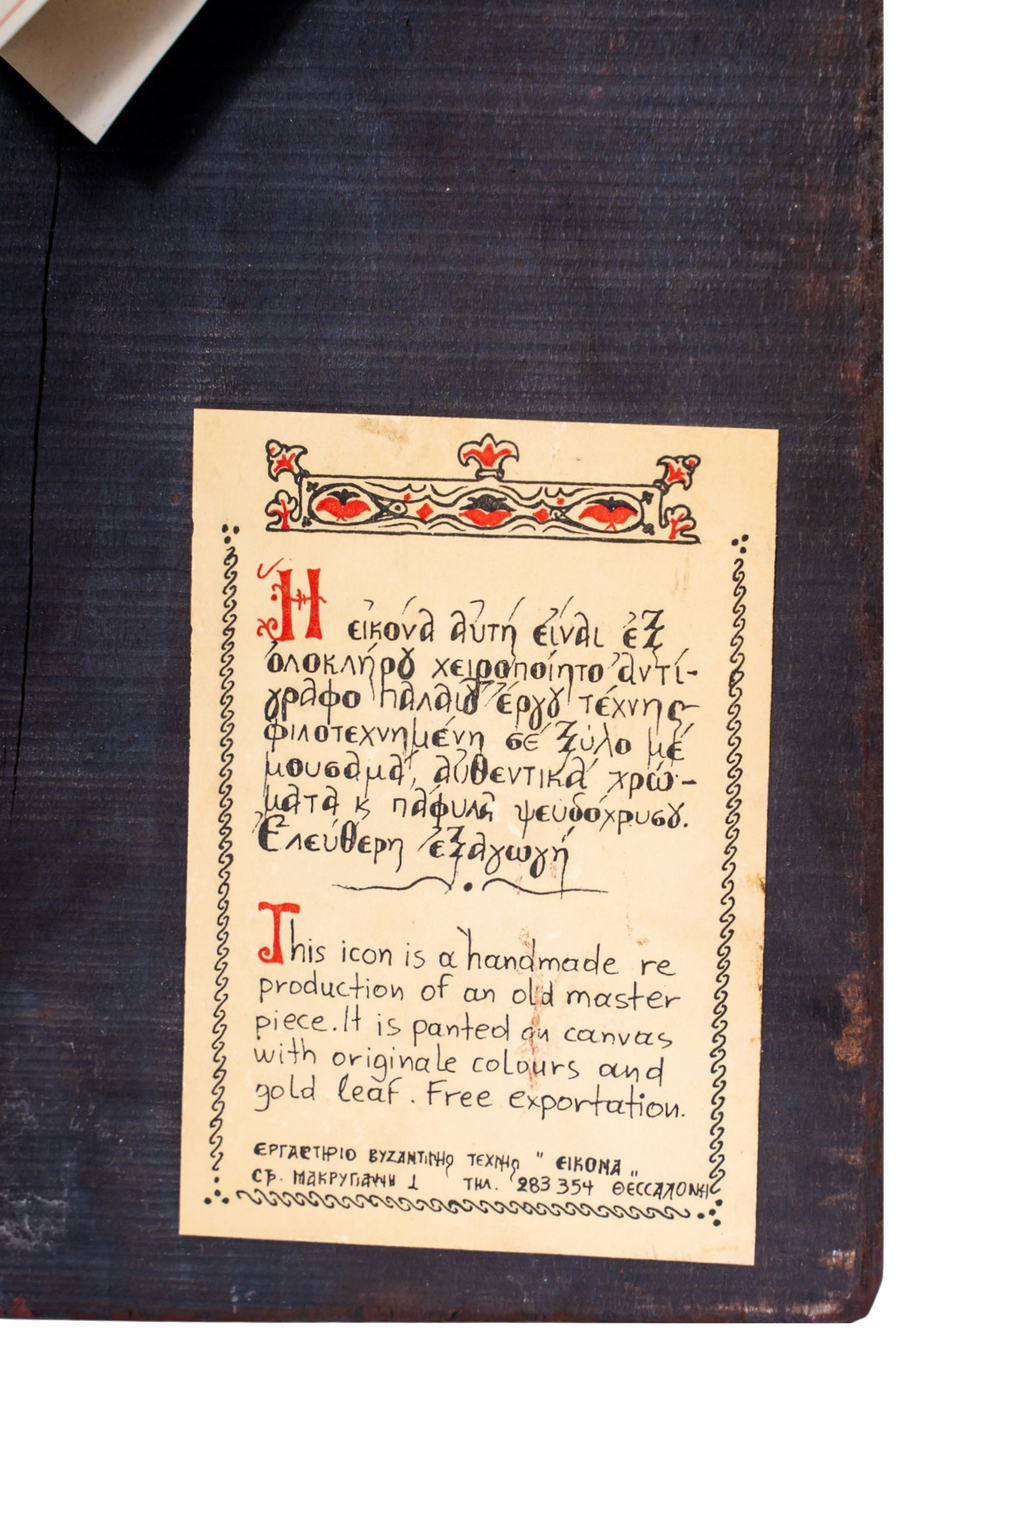 Ἡ εἰκόνα αὐτή εἶναι ἐξ
ὁλοκλήρȣ χειροποίητο ἀντί-
γραφο παλαιȣ ἔργȣ τέχνης
φιλοτεχνημένη σέ ξύλο μέ
μουσαμά, αὐθεντικά χρώ-
ματα κ πάφυλα ψευδόχρυσȣ.
Ἐλεύθερη ἐξαγωγή
This icon is a handmade re
production of an old master
piece. It is panted on canvas
with originale colours and
gold leaf. Free exportation.
ΕΡΓΑСΤΗΡΙΟ ΒΥΖΑΝΤΙΝΗС ΤΕΧΝΗС " ΕΙΚΟΝΑ „
СΤΡ. ΜΑΚΡΥΓΙΑΝΝΗ 1 ΤΗΛ. 283354 ΘΕССΑΛΟΝΙΚΗ